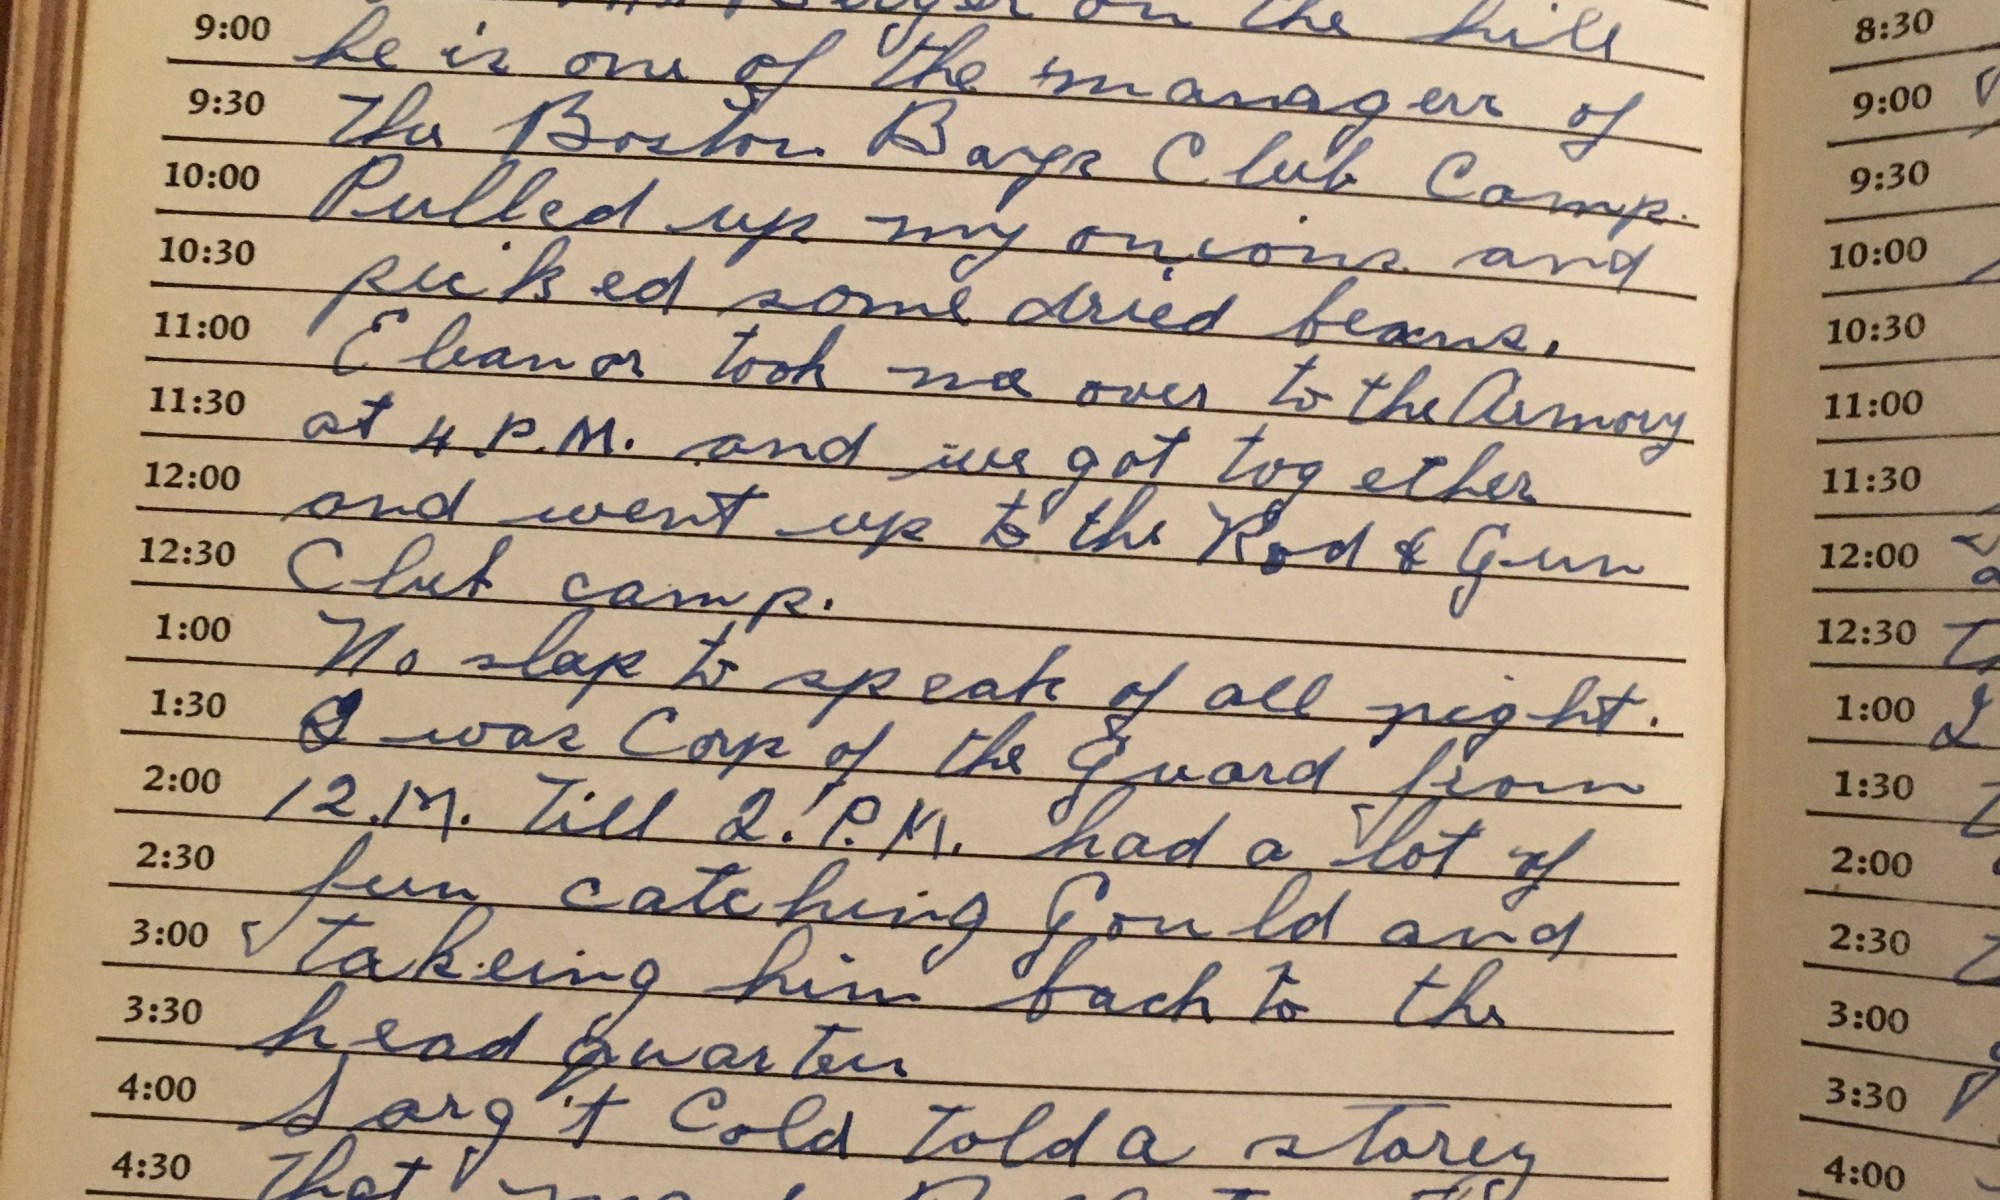 on the hill
9:00 he is one of the managers of
9:30 the Boston Boys Club Camp.
10:00 Pulled up my onions and
10:30 picked some dried beans.
11:00 Eleanor took me over to the Armory
11:30 at 4 P.M. and we got together
12:00 and went up to the Rod & Gun
12:30 Club camp.
1:00 No slep to speak of all night.
1:30 I was Corp of the Guard from
2:00 12.M. Till 2.P.M. had a lot of
2:30 fun catching Gould and
3:00 takeing him back to the
3:30 head quarters
4:00 Sarg't Cold told a storey
4:30 that
8:30
9:00
9:30
10:00
10:30
11:00
11:30
12:00
12:30
1:00 I
1:30
2:00
2:30
3:00
3:30
4:00